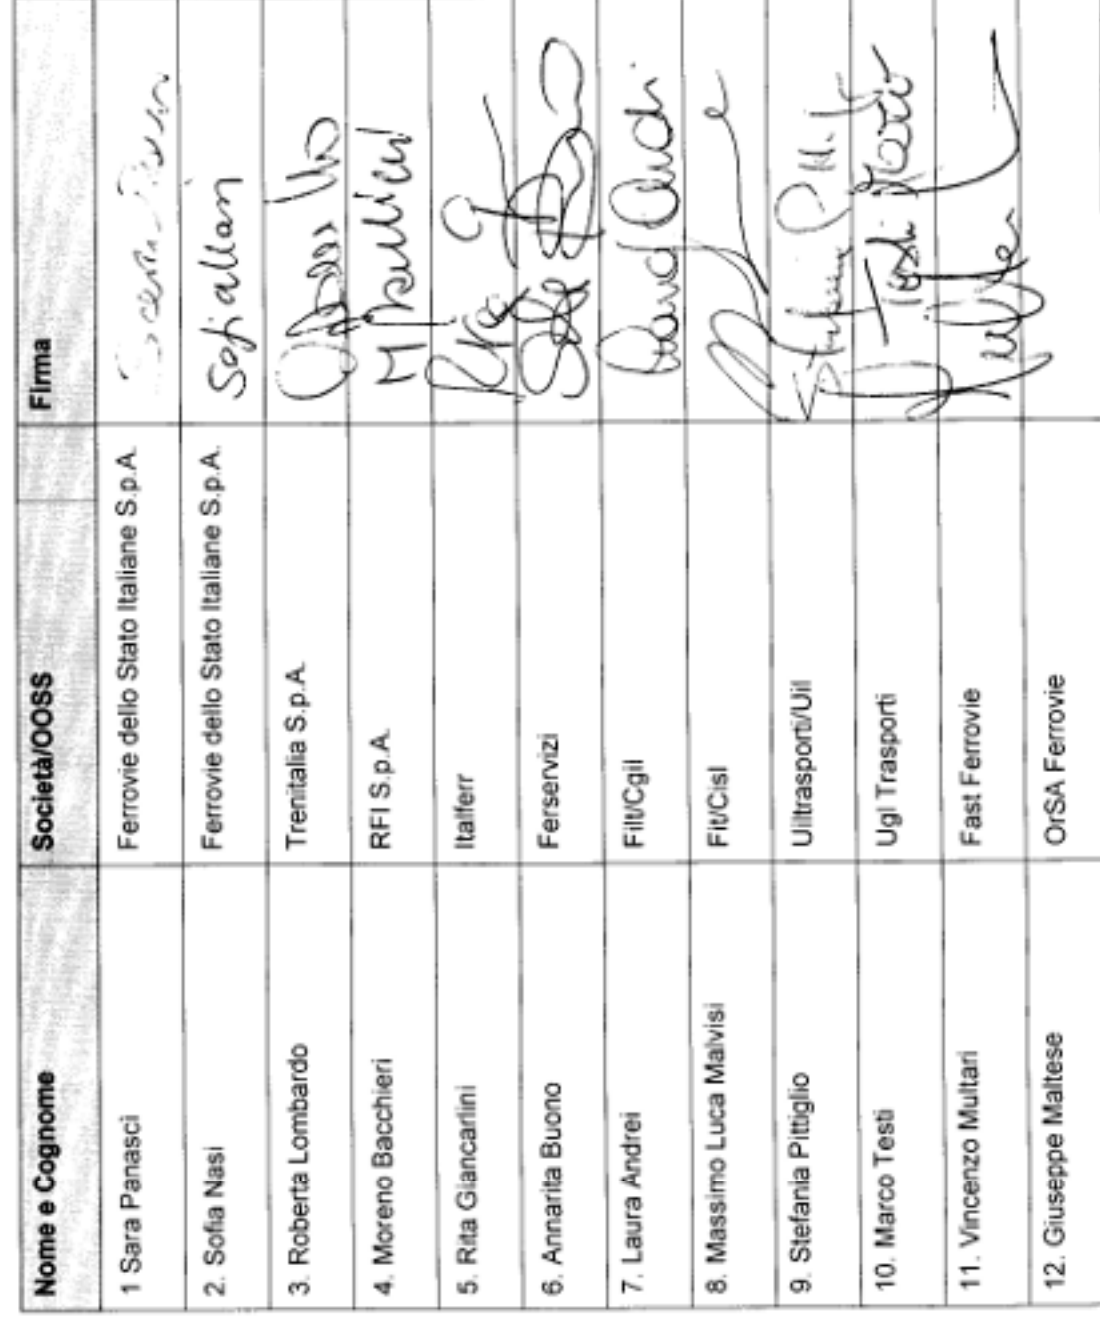 Nome e Cognome Società/OOSS Firma
1 Sara Panascì Ferrovie dello Stato Italiane S.p.A.
2. Sofia Nasi Ferrovie dello Stato Italiane S.p.A. Sofia Nasi
3. Roberta Lombardo Trenitalia S.p.A.
4. Moreno Bacchieri RFI S.p.A.
5. Rita Giancarlini Italferr
6. Annarita Buono Ferservizi
7. Laura Andrei Filt/Cgil
8. Massimo Luca Malvisi Fit/Cisl
9. Stefania Pittiglio Uiltrasporti/Uil
10. Marco Testi Ugl Trasporti
11. Vincenzo Multari Fast Ferrovie
12. Giuseppe Maltese OrSA Ferrovie